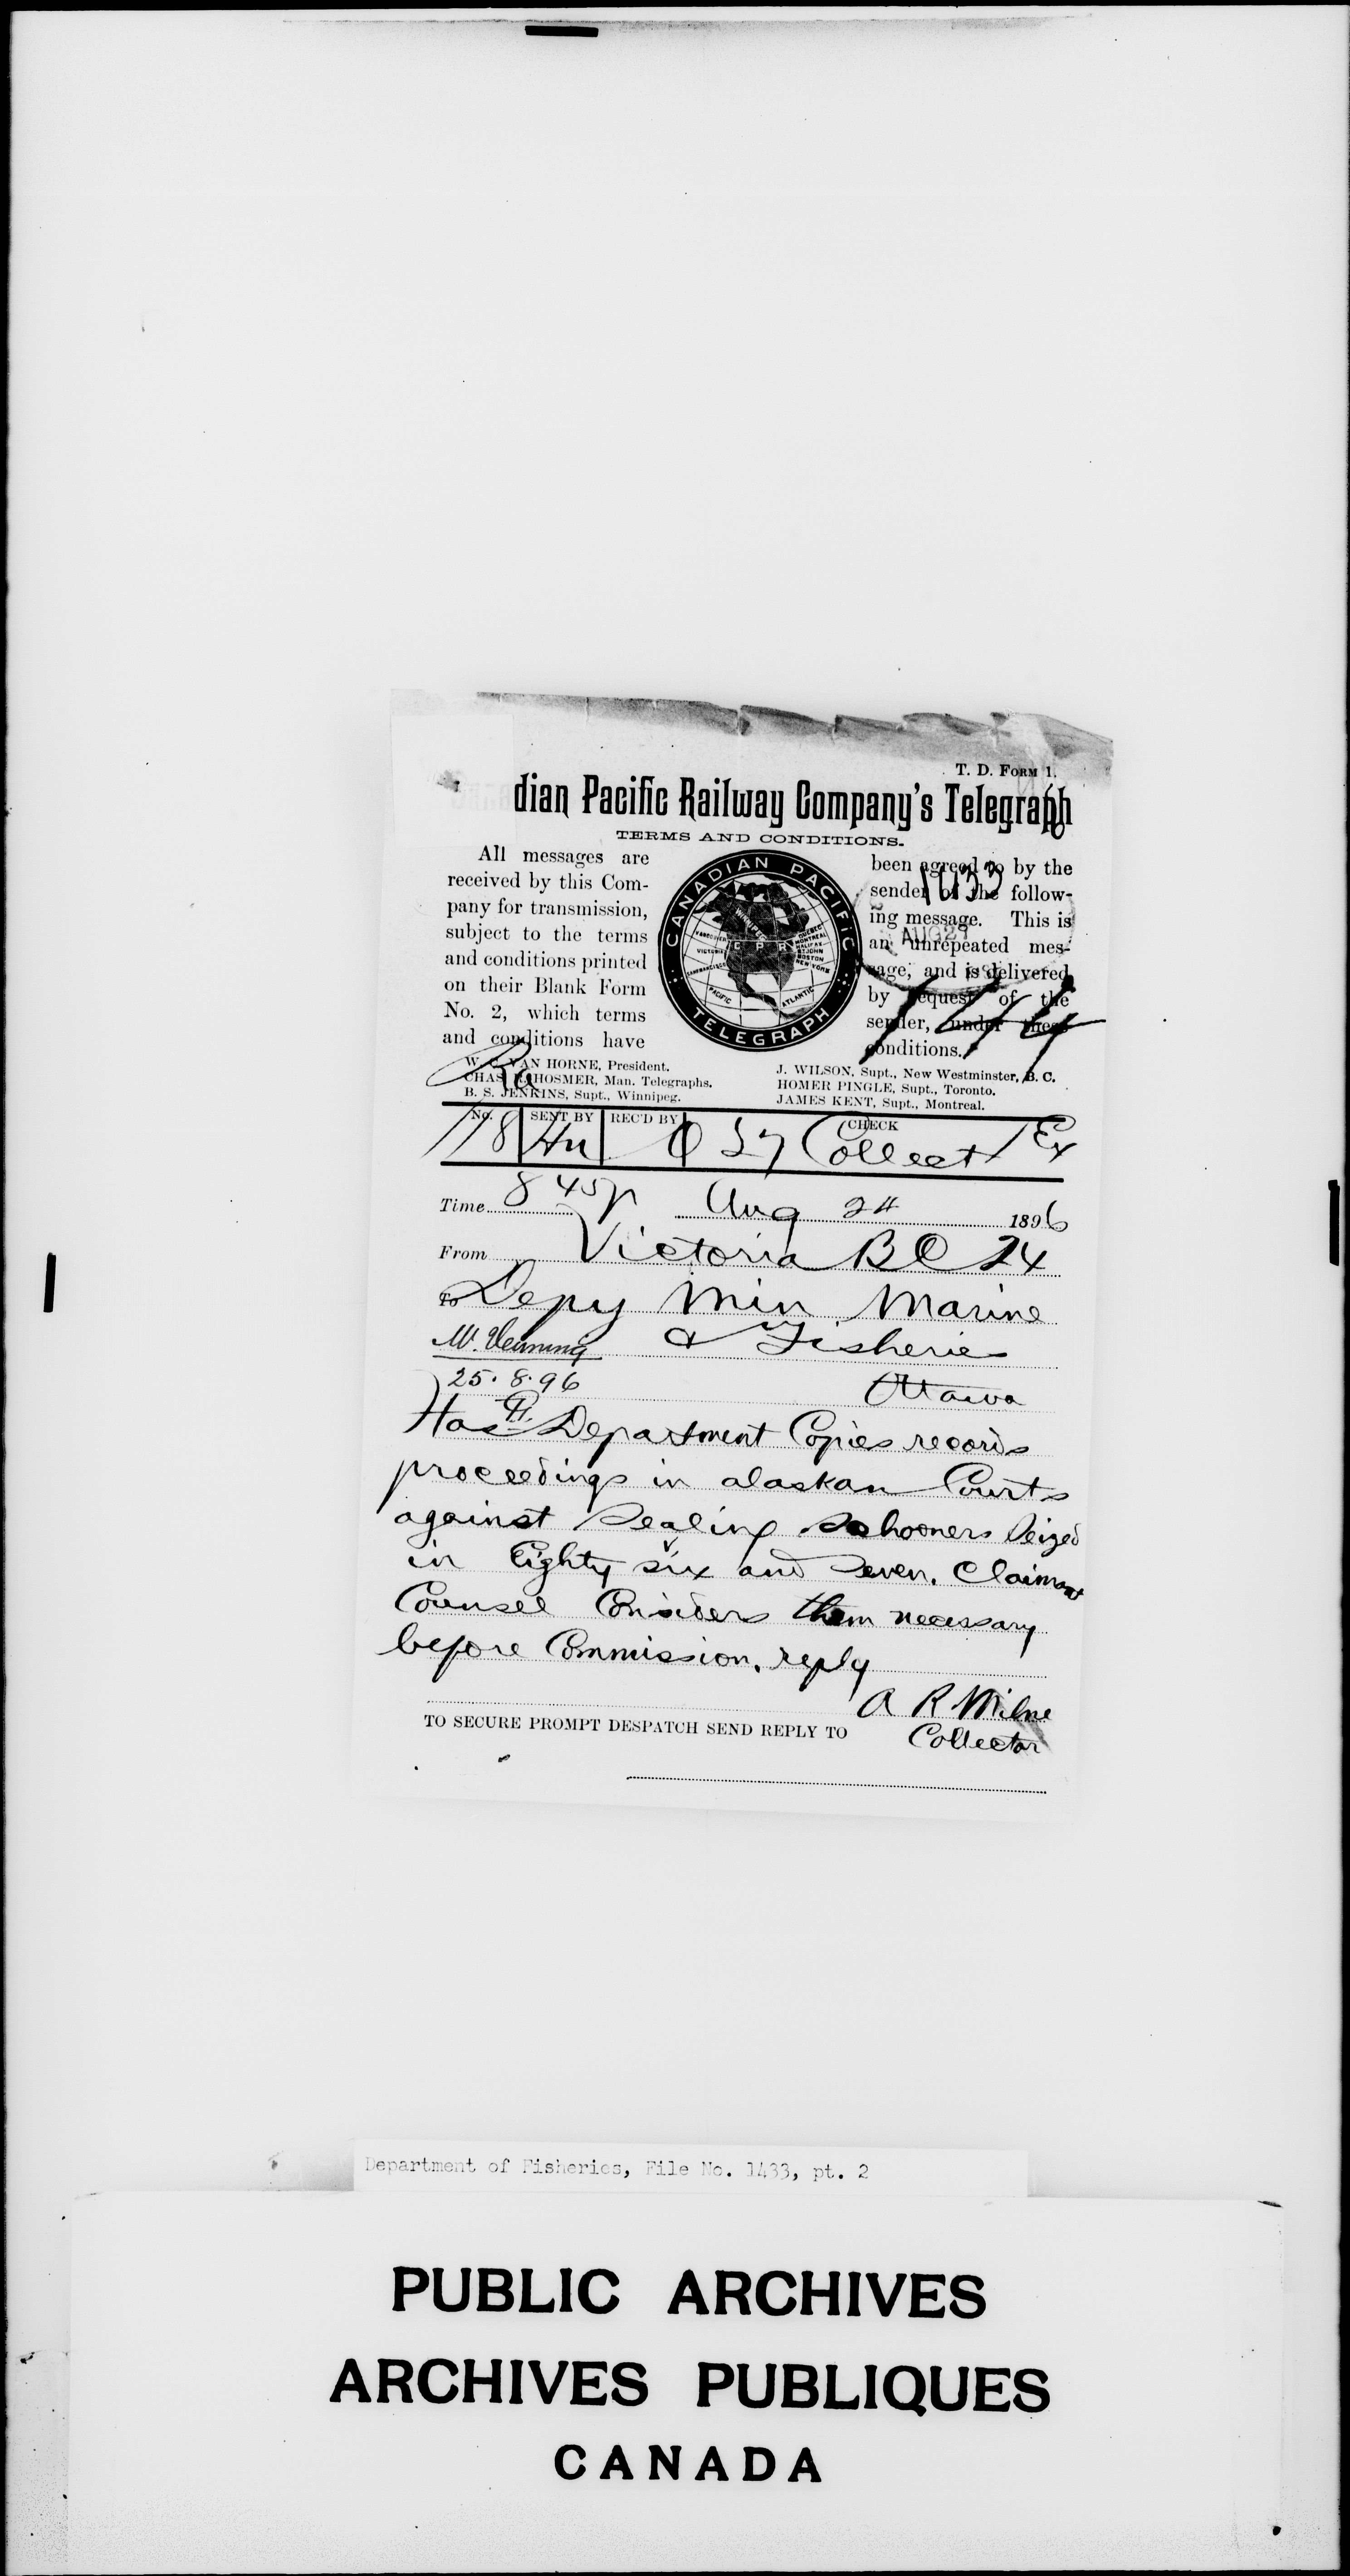 T. D. FORM 1.
dian Pacific Railway Company's Telegraph
TERMS AND CONDITIONS.
All messages are
received by this Com-
pany for transmission,
subject to the terms
and conditions printed
on their Blank Form
No. 2, which terms
and conditions have
CANADIAN PACIFIC
TELEGRAPH
WINNIPEG
VANCOUVER
VICTORIA
SAN FRANCISCO
C P R
QUEBEC
MONTREAL
HALIFAX
ST JOHN
BOSTON
NEW YORK
PACIFIC
ATLANTIC
been agreed to by the
sender of the follow-
ing message. This is
an unrepeated mes-
sage, and is delivered
by request of the
sender, under these
conditions.
1433
AUG 27
144
W. C. VAN HORNE, President.
CHAS. R. HOSMER, Man. Telegraphs.
B. S. JENKINS, Supt., Winnipeg.
J. WILSON, Supt., New Westminster, B. C.
HOMER PINGLE, Supt., Toronto.
JAMES KENT, Supt., Montreal.
No. SENT BY REC'D BY CHECK
118 Hn Collect Ex
Time 8 45 p Aug 24 1896
From Victoria BC 24
To Depy Min Marine
& Fisheries
Mr. Venning
25.8.96
Ottawa
Has Department Copies records
proceedings in alaskan Courts
against Sealing Schooners Seized
in Eighty six and Seven. Claimant
Counsel Considers them necessary
before Commission. reply
A R Milne
Collector
TO SECURE PROMPT DESPATCH SEND REPLY TO
Department of Fisheries, File No. 1433, pt. 2
PUBLIC ARCHIVES
ARCHIVES PUBLIQUES
CANADA